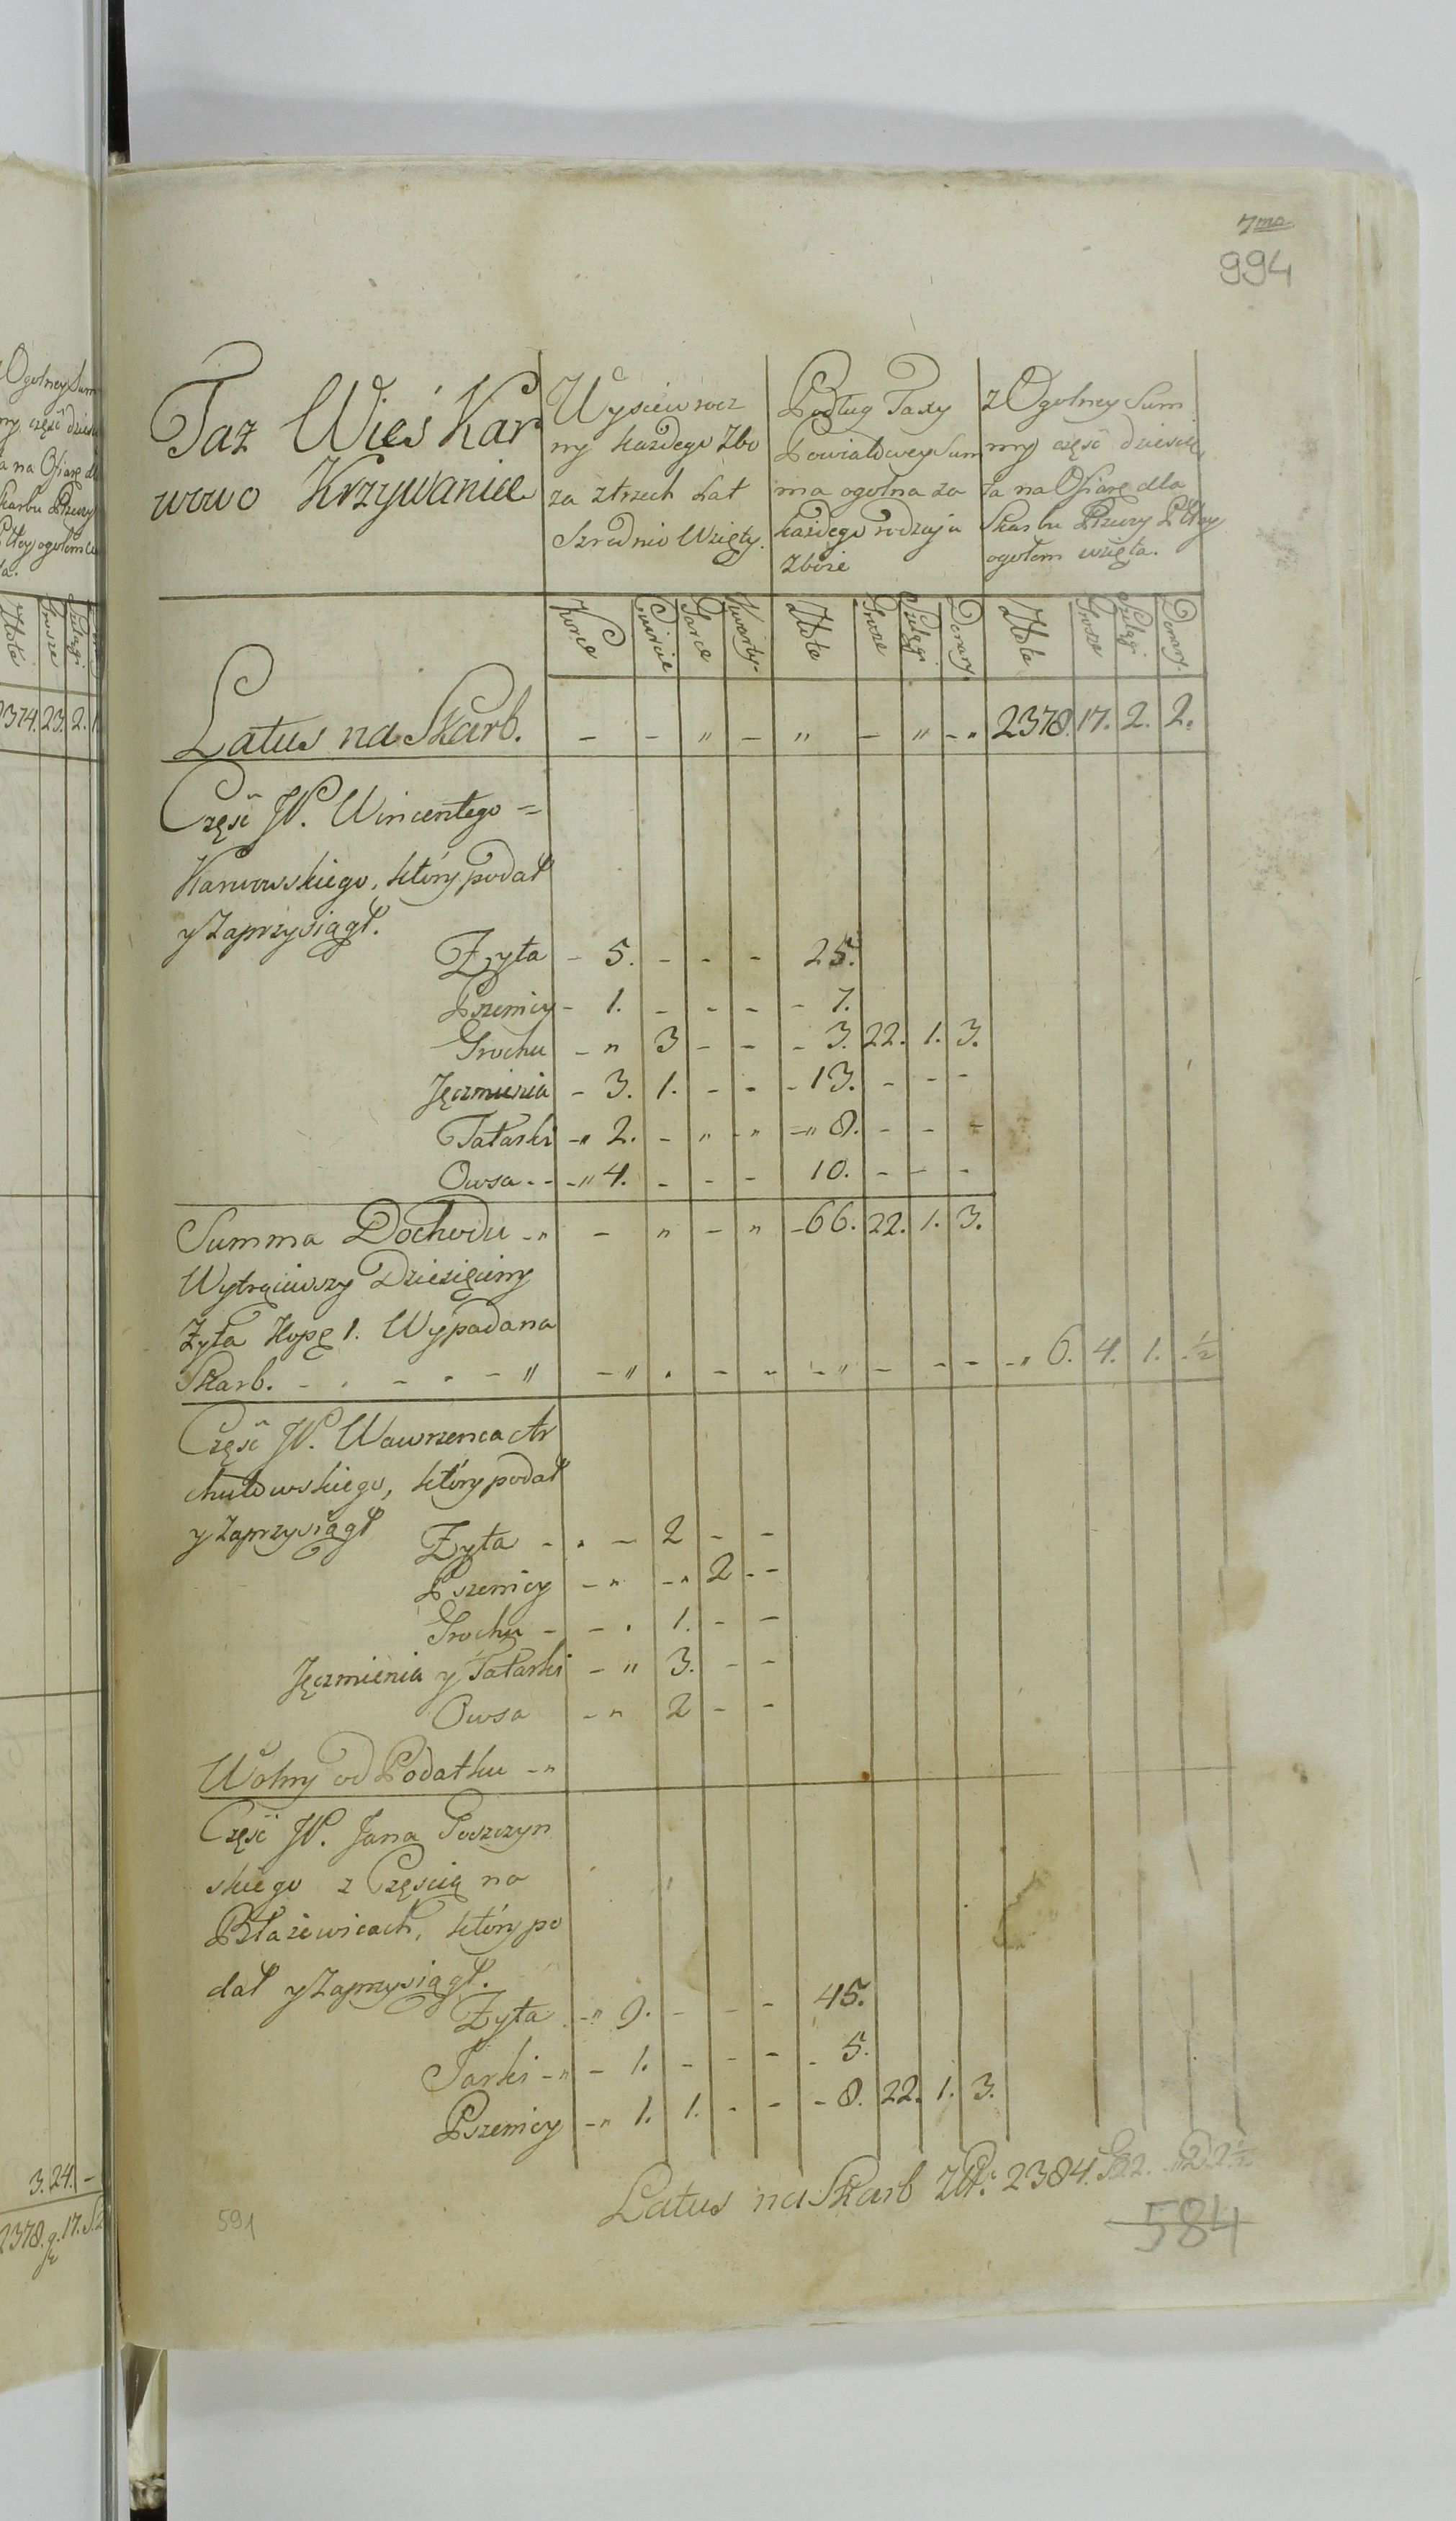 7mo
994
Taż Wieś Kar
wowo Krzywanice
Wysiew rocz
ny każdego Zbo
za z trzech Lat
Szrednio Wzięty.
Podług Taxy
Powiatowey Sum
ma ogolna za
każdego rodzaju
Zboże
z Ogolney Sum
my część dziesią
ta na Ofiarę dla
Skarbu Rzeczy Pttey
ogołem wzięta.
Korce Ćwiercie Garce Kwarty Złote Grosze Szelągi Denary Złote Grosze Szelągi Denary
Latus na Skarb. - - " - " - " - " 2378. 17. 2. 2.
Część JP. Wincentego =
Karwowskiego, który podał
y Zaprzysiągł.
Żyta - 5. - - - 25.
Pszenicy - 1. - - - - 7.
Grochu - " 3 - - - 3. 22. 1. 3.
Jęczmienia - 3. 1. - - - 13. - - -
Tatarki - " 2. - " - " - " 8. - - -
Owsa - - - " 4. - - - 10. - - -
Summa Dochodu - " - " - " - 66. 22. 1. 3.
Wytrąciwszy Dziesięciny
Żyta Kopę 1. Wypada na
Skarb. - . - . - " - " . - - - " - - - - " 6. 4. 1. ½
Część JP. Wawrzenca Ar
chutowskiego, który podał
y Zaprzysiągł
Żyta - . - 2 - -
Pszenicy - " - " 2 - -
Grochu - - . 1. - -
Jęczmienia y Tatarki - " 3. - -
Owsa - " 2 - -
Wolny od Podatku - "
Część JP. Jana Goszczyn
skiego z Częścią na
Błażewicach, który po
dał y Zaprzysiągł.
Żyta - " 9. - - - 45.
Tarki - " - 1. - - - - 5.
Pszenicy - " 1. 1. - - - 8. 22. 1. 3.
Latus na Skarb Złł: 2384.
591
584
Złote Grosze Szelągi
2374. 23. 2. 1
3. 24. -
2378. g. 17. S. 2